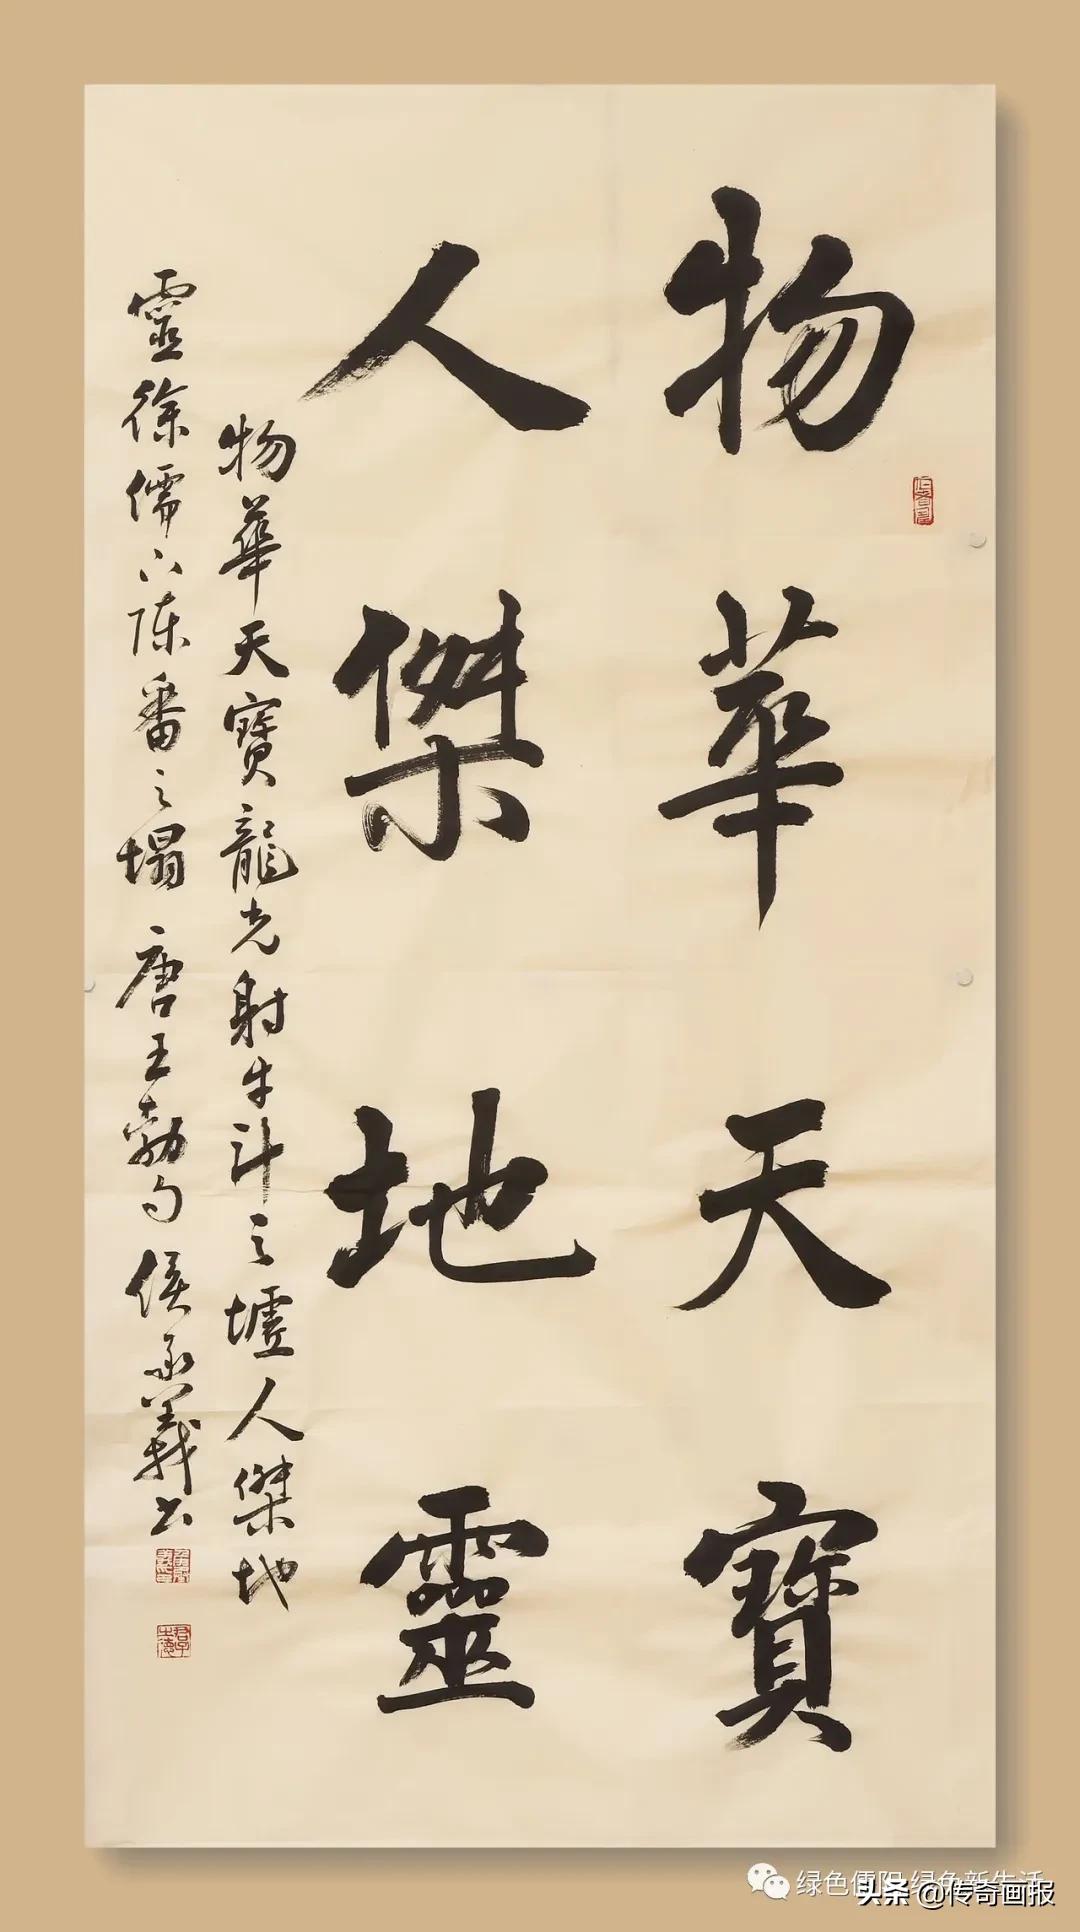 物華天寶
人傑地靈
物華天寶龍光射牛斗之墟人傑地
靈徐儒下陳番之塌 唐王勃句 侯承義书
绿色儒阳 绿色新生活
头条 @传奇画报